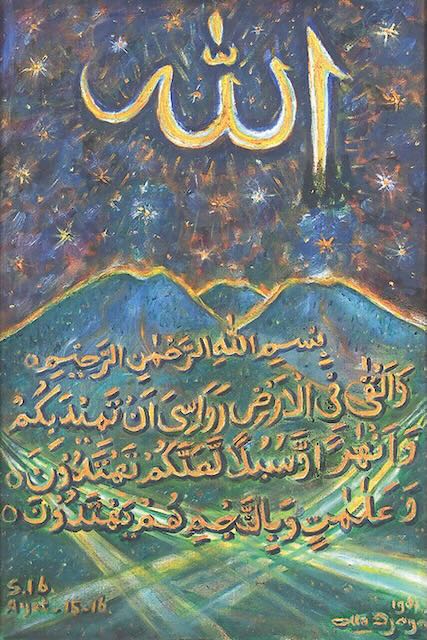 الله
بِسْمِ اللهِ الرَّحْمٰنِ الرَّحِيْمِ
وَاَلْقٰى فِى الْاَرْضِ رَوَاسِىَ اَنْ تَمِيْدَ بِكُمْ
وَاَنْهٰرًا وَّسُبُلًا لَّعَلَّكُمْ تَهْتَدُوْنَ
وَعَلٰمٰتٍ وَبِالنَّجْمِ هُمْ يَهْتَدُوْنَ
S.16.
Ayat. 15-16.
Otto Djaya